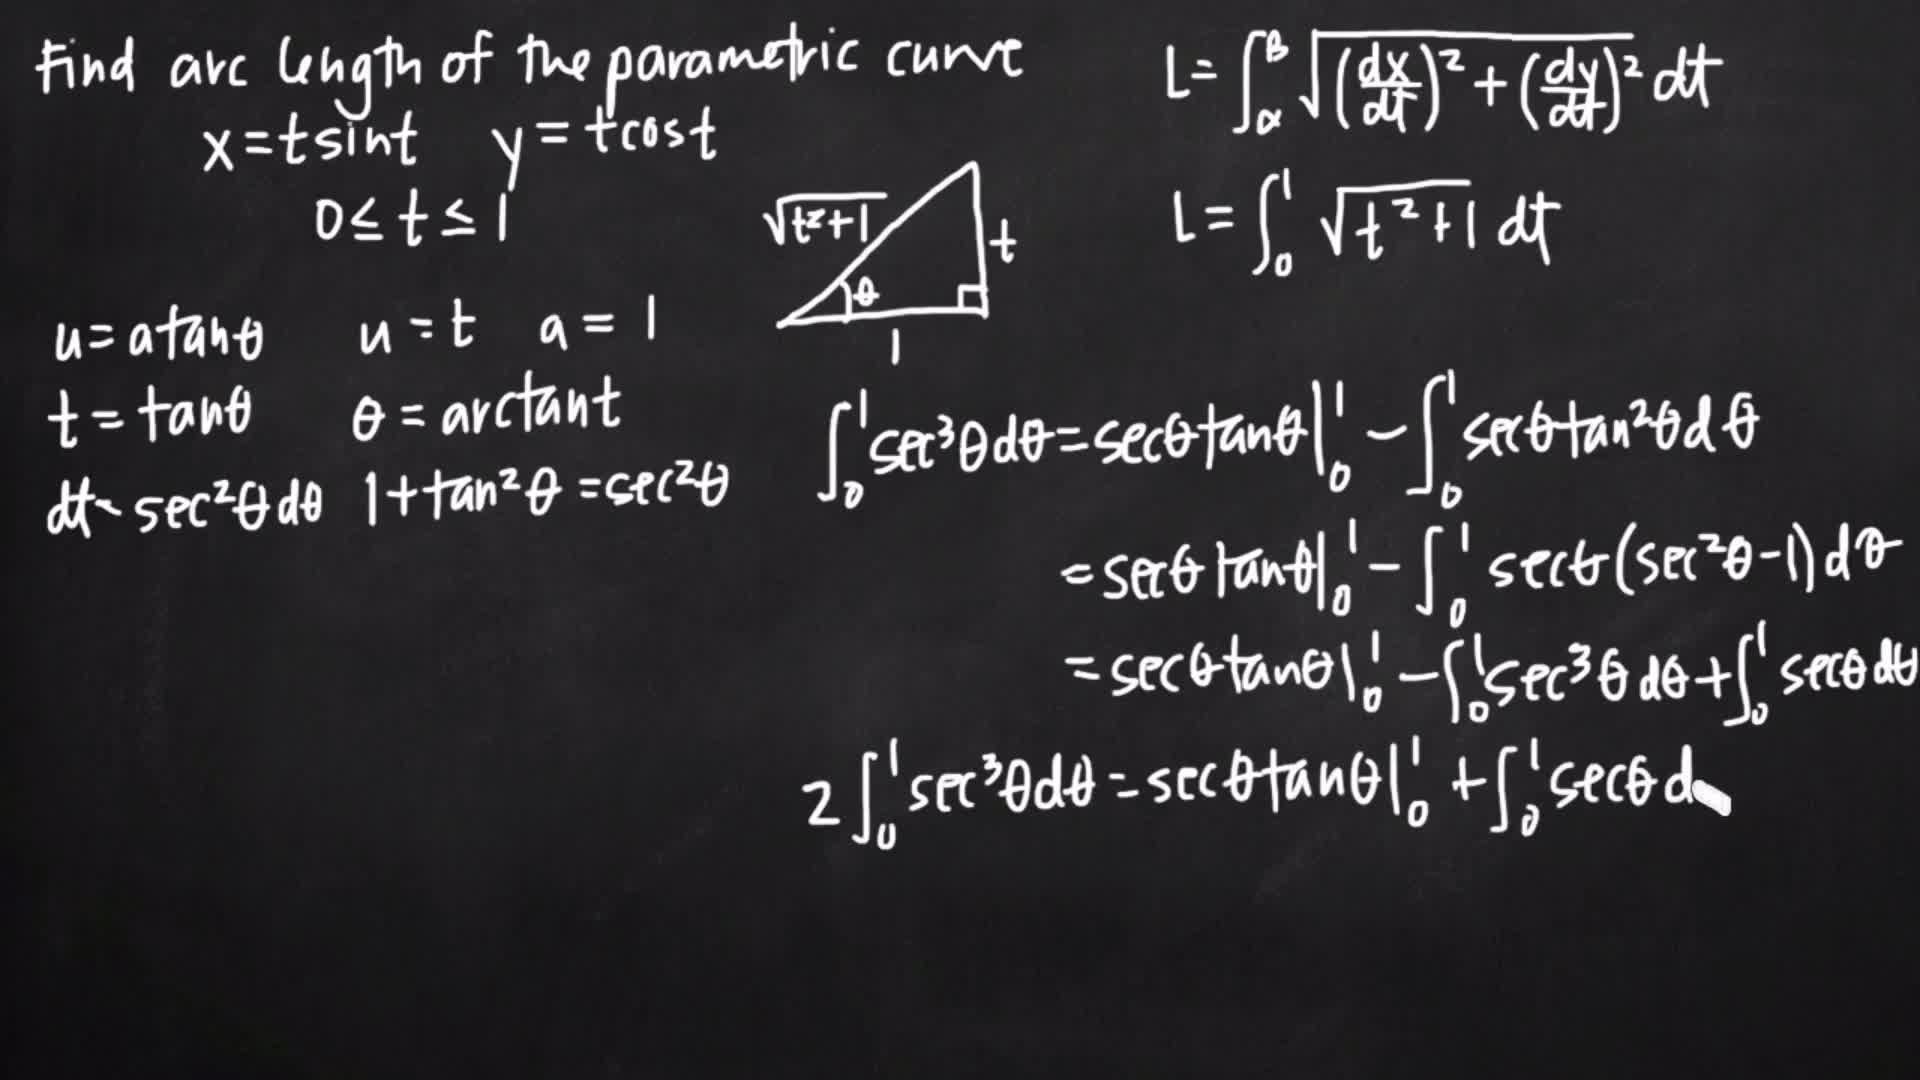 Find arc length of the parametric curve
x = t sin t   y = t cos t
0 ≤ t ≤ 1
L = ∫_α^β √((dx/dt)² + (dy/dt)²) dt
L = ∫_0^1 √(t² + 1) dt
√(t²+1)
t
θ
1
u = a tanθ   u = t   a = 1
t = tanθ   θ = arctan t
dt = sec²θ dθ   1 + tan²θ = sec²θ
∫_0^1 sec³θ dθ = secθ tanθ |_0^1 − ∫_0^1 secθ tan²θ dθ
= secθ tanθ |_0^1 − ∫_0^1 secθ (sec²θ − 1) dθ
= secθ tanθ |_0^1 − ∫_0^1 sec³θ dθ + ∫_0^1 secθ dθ
2 ∫_0^1 sec³θ dθ = secθ tanθ |_0^1 + ∫_0^1 secθ d